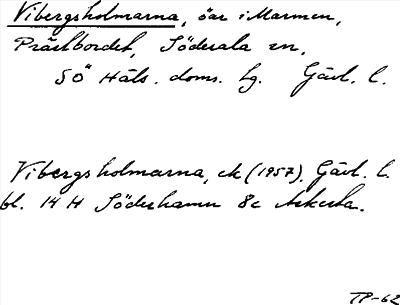 Vibergsholmarna, öar i Marmen,
Prästbordet, Söderala sn,
SÖ Häls. doms. tg. Gävl. l.
Vibergsholmarna, ek (1957). Gävl. l.
bl. 14 H Söderhamn 8c Askesta.
TP-62